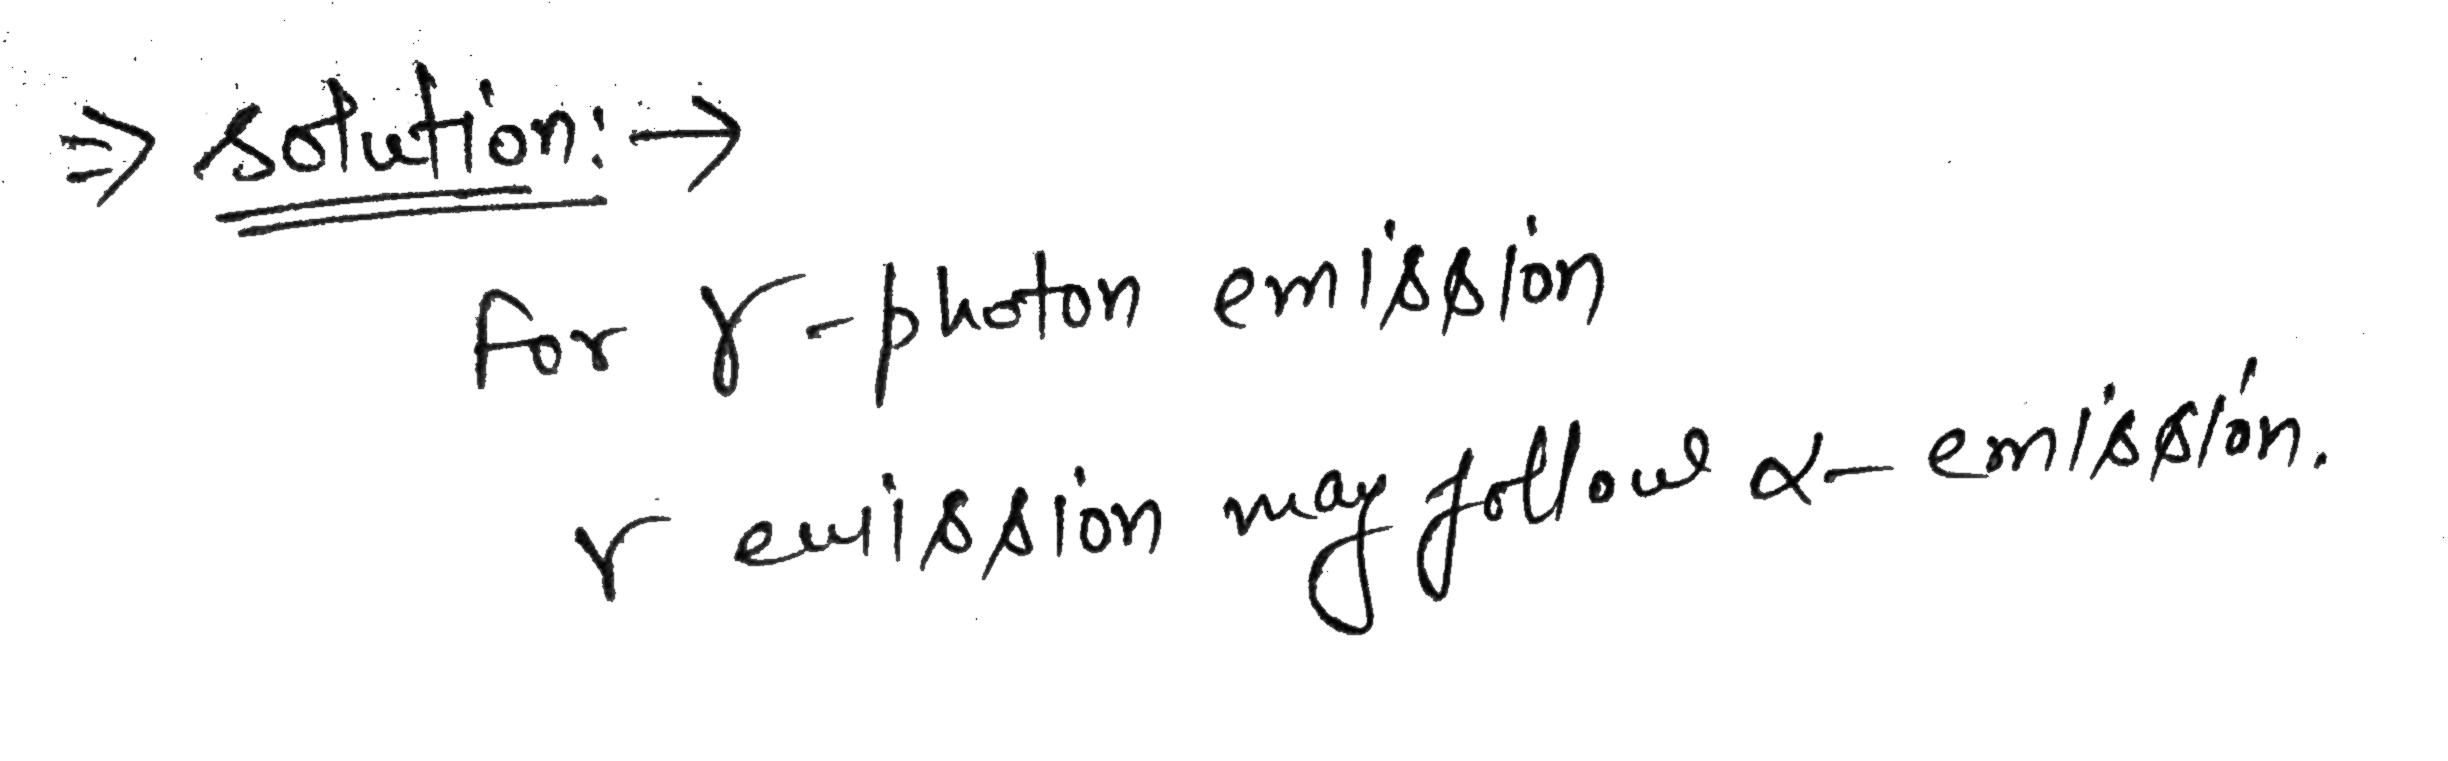 ⇒ solution:→
for γ-photon emission
γ emission may follow α- emission.